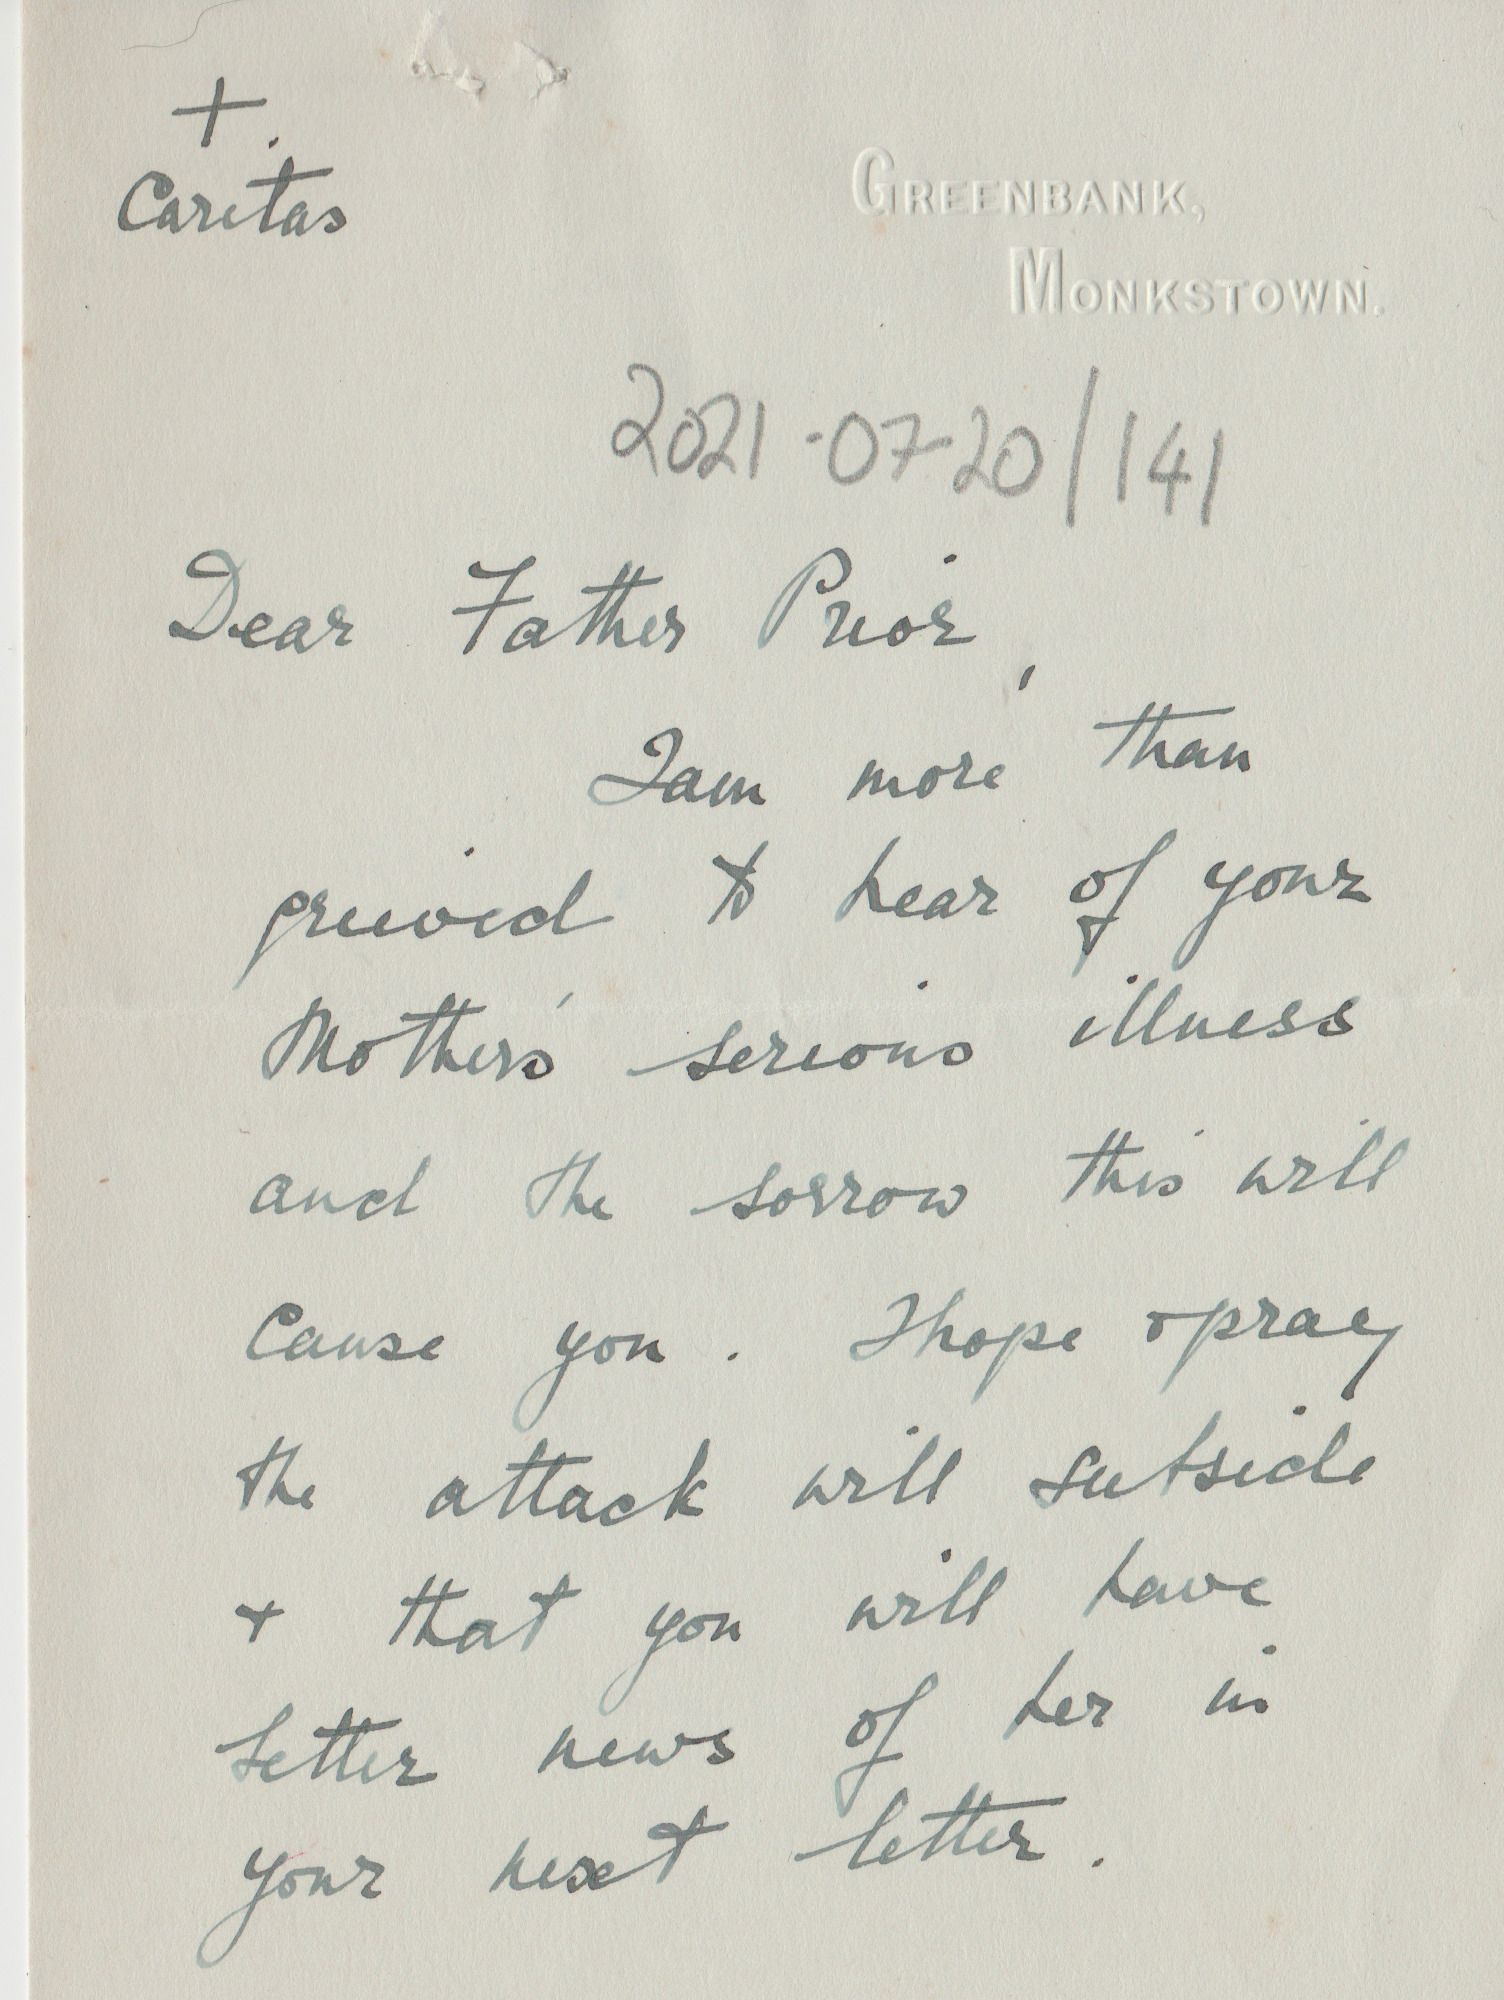 +.
Caritas
GREENBANK,
MONKSTOWN.
2021-07-20/141
Dear Father Prior,
I am more than
grieved to hear of your
Mother's serious illness
and the sorrow this will
cause you. I hope & pray
the attack will subside
& that you will have
better news of her in
your next letter.